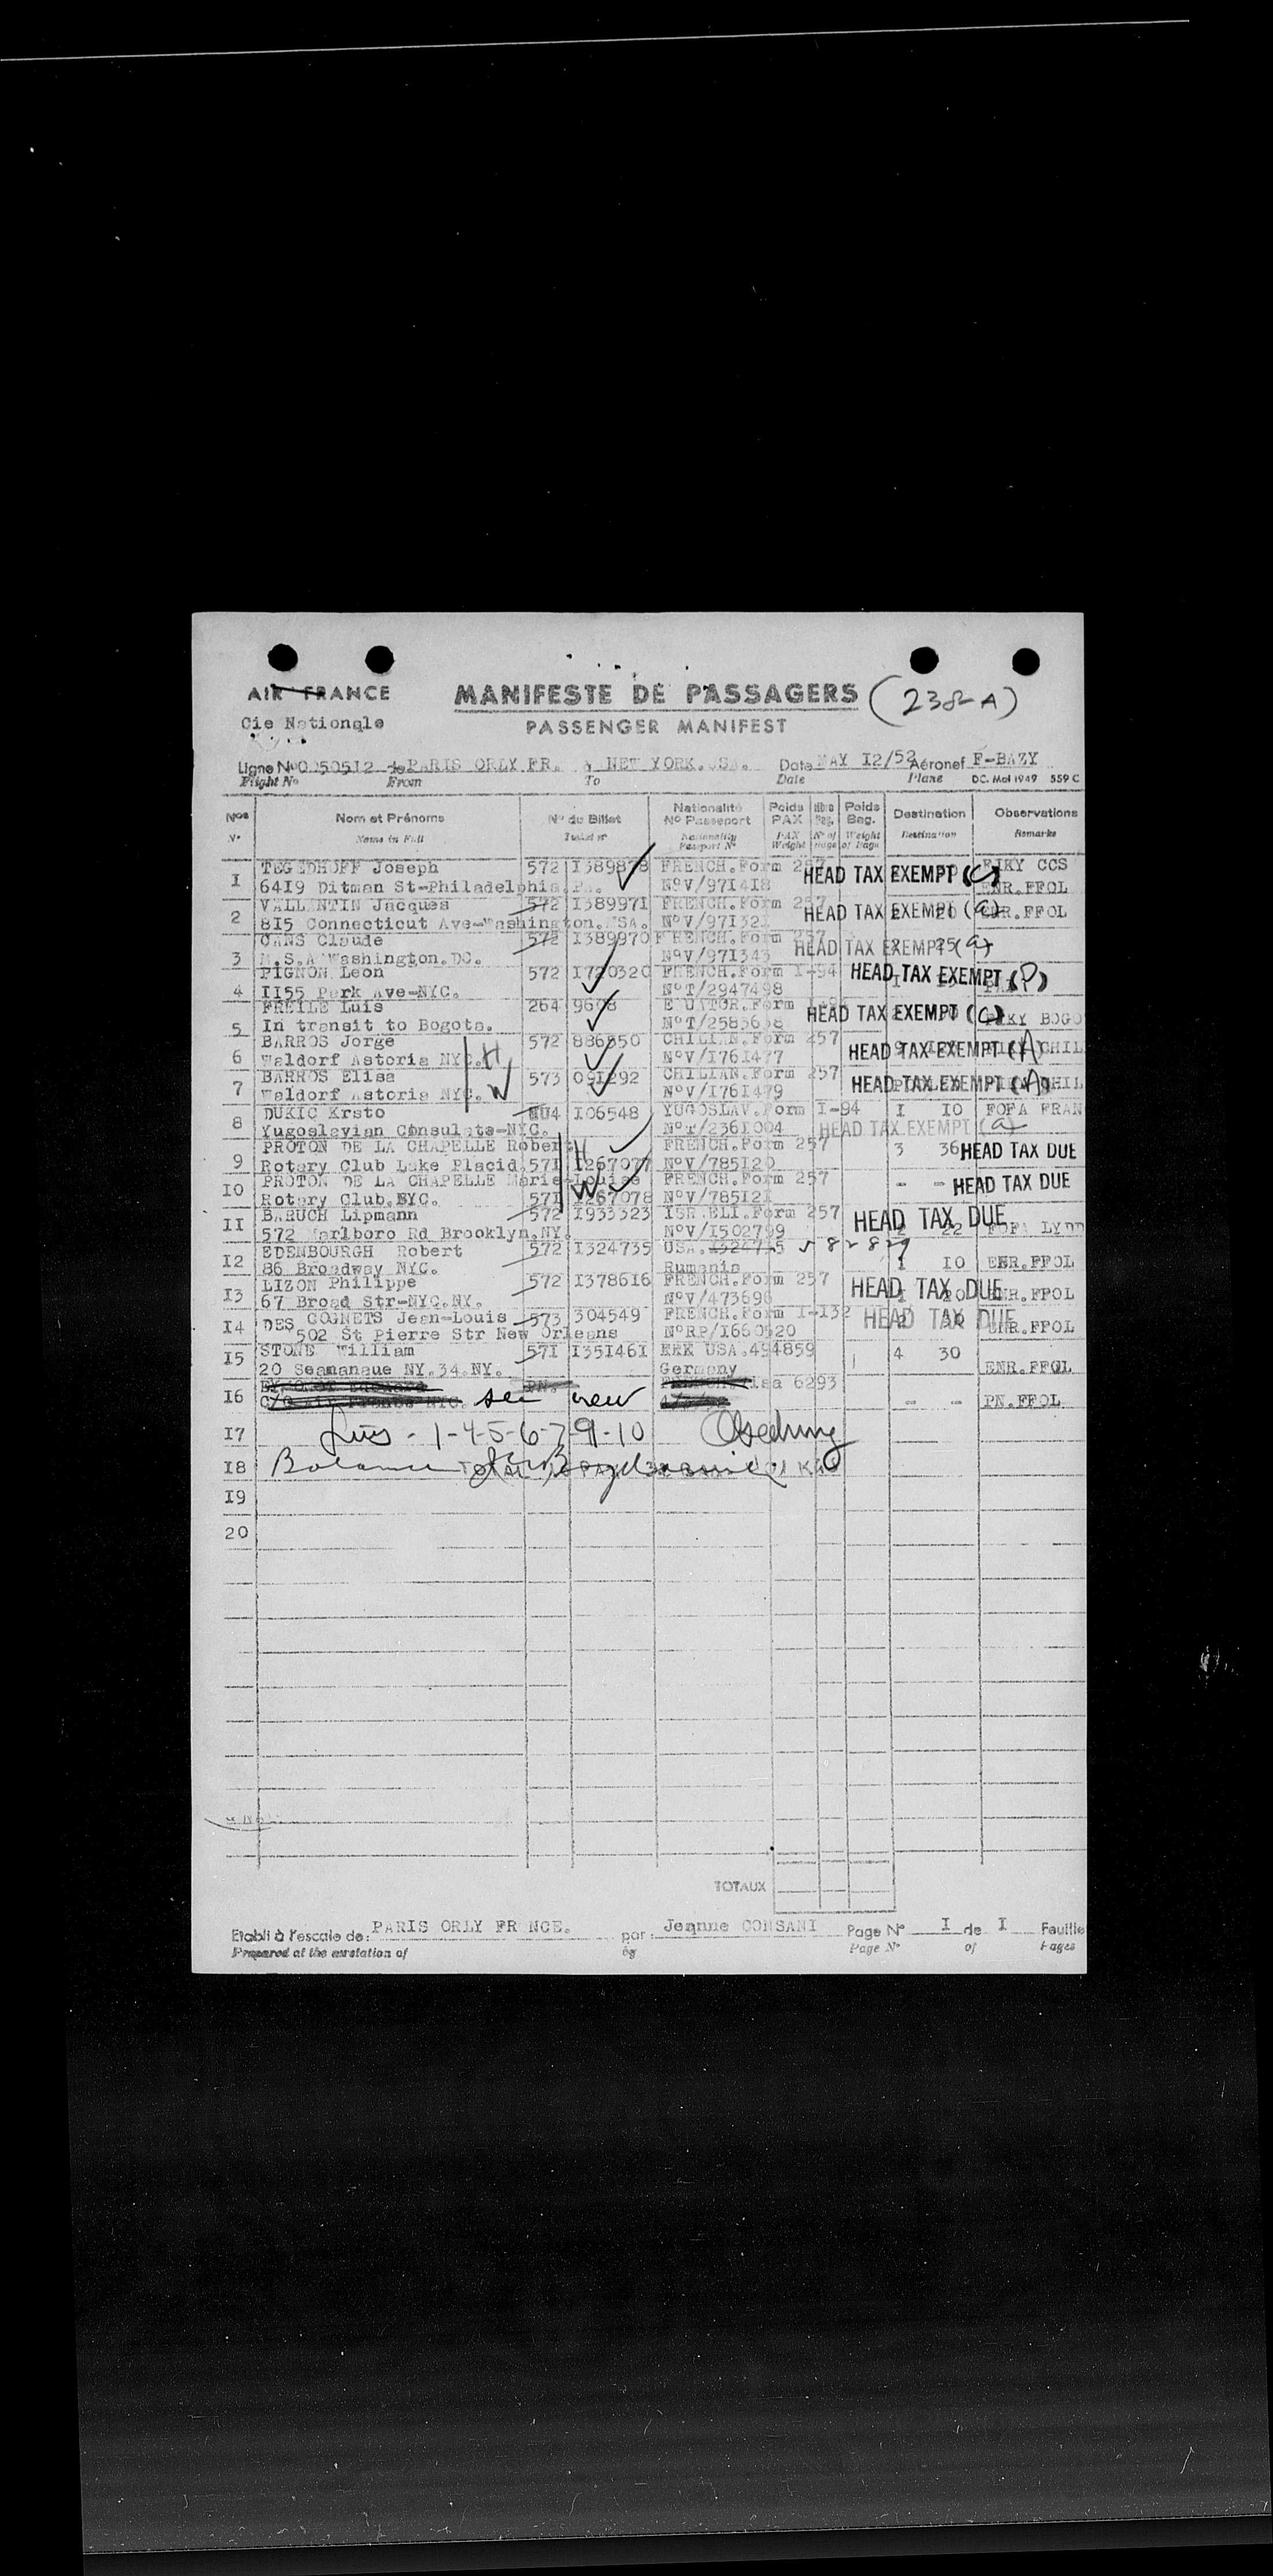 AIR FRANCE
Cie Nationale
MANIFESTE DE PASSAGERS (238-A)
PASSENGER MANIFEST
Ligne No 050512 de PARIS ORLY FR. à NEW YORK.USA. Date MAY I2/52 Aéronef F-BAZY
Flight No From To Date Plane DC. Mol 1949 559 C
Nos Nom et Prénoms No du Billet Nationalité No Passeport Poids PAX Poids Bag. Destination Observations
No Name in Full Ticket no Nationality Passport No PAX Weight No of Weight of Bags Destination Remarks
I TEGEDHOFF Joseph 572 I389878 FRENCH.Form 257 HEAD TAX EXEMPT (C) CCS
64I9 Ditman St-Philadelphia.Pa. NoV/97I4I8 ENR.FFOL
2 VALLENTIN Jacques 572 I38997I FRENCH.Form 257 HEAD TAX EXEMPT (a)
8I5 Connecticut Ave-Washington.USA. NoV/97I32I ENR.FFOL
3 Claude 572 I389970 FRENCH.Form 257 HEAD TAX EXEMPT (a)
M.S.A Washington.DC. NoV/97I343
4 PIGNON Leon 572 I720320 FRENCH.Form I-94 HEAD TAX EXEMPT (P)
II55 Park Ave-NYC. NoT/2947498
5 FREILE Luis 264 9678 Form HEAD TAX EXEMPT (C)
In transit to Bogota. NoT/2583638 BOGO
6 BARROS Jorge 572 886550 CHILIAN.Form 257 HEAD TAX EXEMPT (A) CHIL
Waldorf Astoria NYC. H NoV/I76I477
7 BARROS Elisa 573 09I292 CHILIAN.Form 257 HEAD TAX EXEMPT (A) CHIL
Waldorf Astoria NYC. W NoV/I76I479
8 DUKIC Krsto 4 I06548 YUGOSLAV.Form I-94 I IO FOFA FRAN
Yugoslavian Consulate-NYC. NoT/236I004 HEAD TAX EXEMPT (a)
9 PROTON DE LA CHAPELLE Robert H FRENCH.Form 257 3 36 HEAD TAX DUE
Rotary Club Lake Placid. 57I I267077 NoV/785I20
IO PROTON DE LA CHAPELLE Marie-Louise W FRENCH.Form 257 - - HEAD TAX DUE
Rotary Club.NYC. 57I I267078 NoV/785I2I
II BARUCH Lipmann 572 I933323 ISRAELI.Form 257 HEAD TAX DUE 22 FOFA LYDD
572 Marlboro Rd Brooklyn.NY. NoV/I502799
I2 EDENBOURGH Robert 572 I324735 USA. 82829
86 Broadway NYC. Rumania I IO ENR.FFOL
I3 LIZON Philippe 572 I3786I6 FRENCH.Form 257 HEAD TAX DUE
67 Broad Str-NYC.NY. NoV/473696 ENR.FFOL
I4 DES COGNETS Jean-Louis 573 304549 FRENCH.Form I-I32 HEAD TAX DUE
502 St Pierre Str New Orleans NoRP/I660520 ENR.FFOL
I5 STONE William 57I I35I46I USA.494859 4 30
20 Seamanaue NY.34.NY. Germany ENR.FFOL
I6 PN. 6293
see new - - PN.FFOL
I7 - 1-4-5-6-7-9-10
I8 Balance TOTAL
I9
20
TOTAUX
Etabli à l'escale de: PARIS ORLY FRANCE. par: Jeanne CONSANI Page No I de I Feuille
Prepared at the escalation of by Page No of Pages